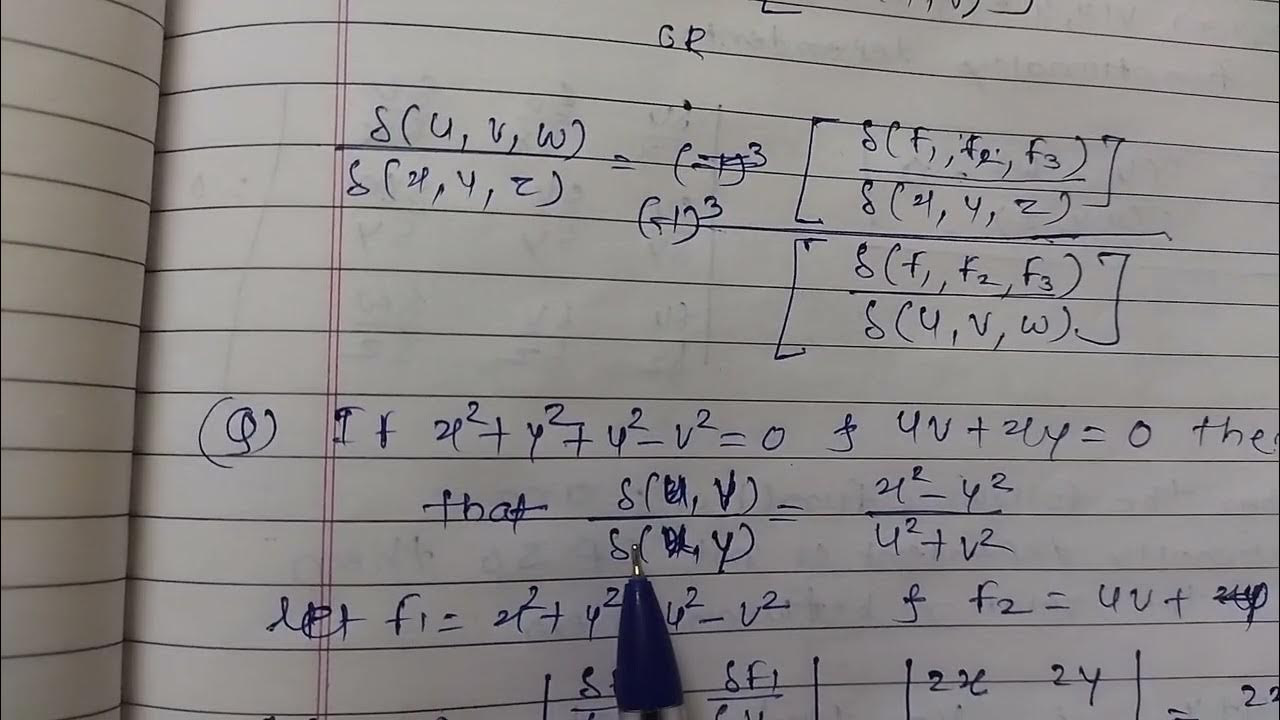 OR
δ(u, v, w) / δ(x, y, z) = (-1)³ [δ(f₁, f₂, f₃) / δ(x, y, z)] / [δ(f₁, f₂, f₃) / δ(u, v, w)]
(Q) If x² + y² + u² - v² = 0 & uv + xy = 0 the
that δ(u, v) / δ(x, y) = x² - y² / u² + v²
let f₁ = x² + y² u² - v² & f₂ = uv + xy
δF₁ 2x 2y = 2x